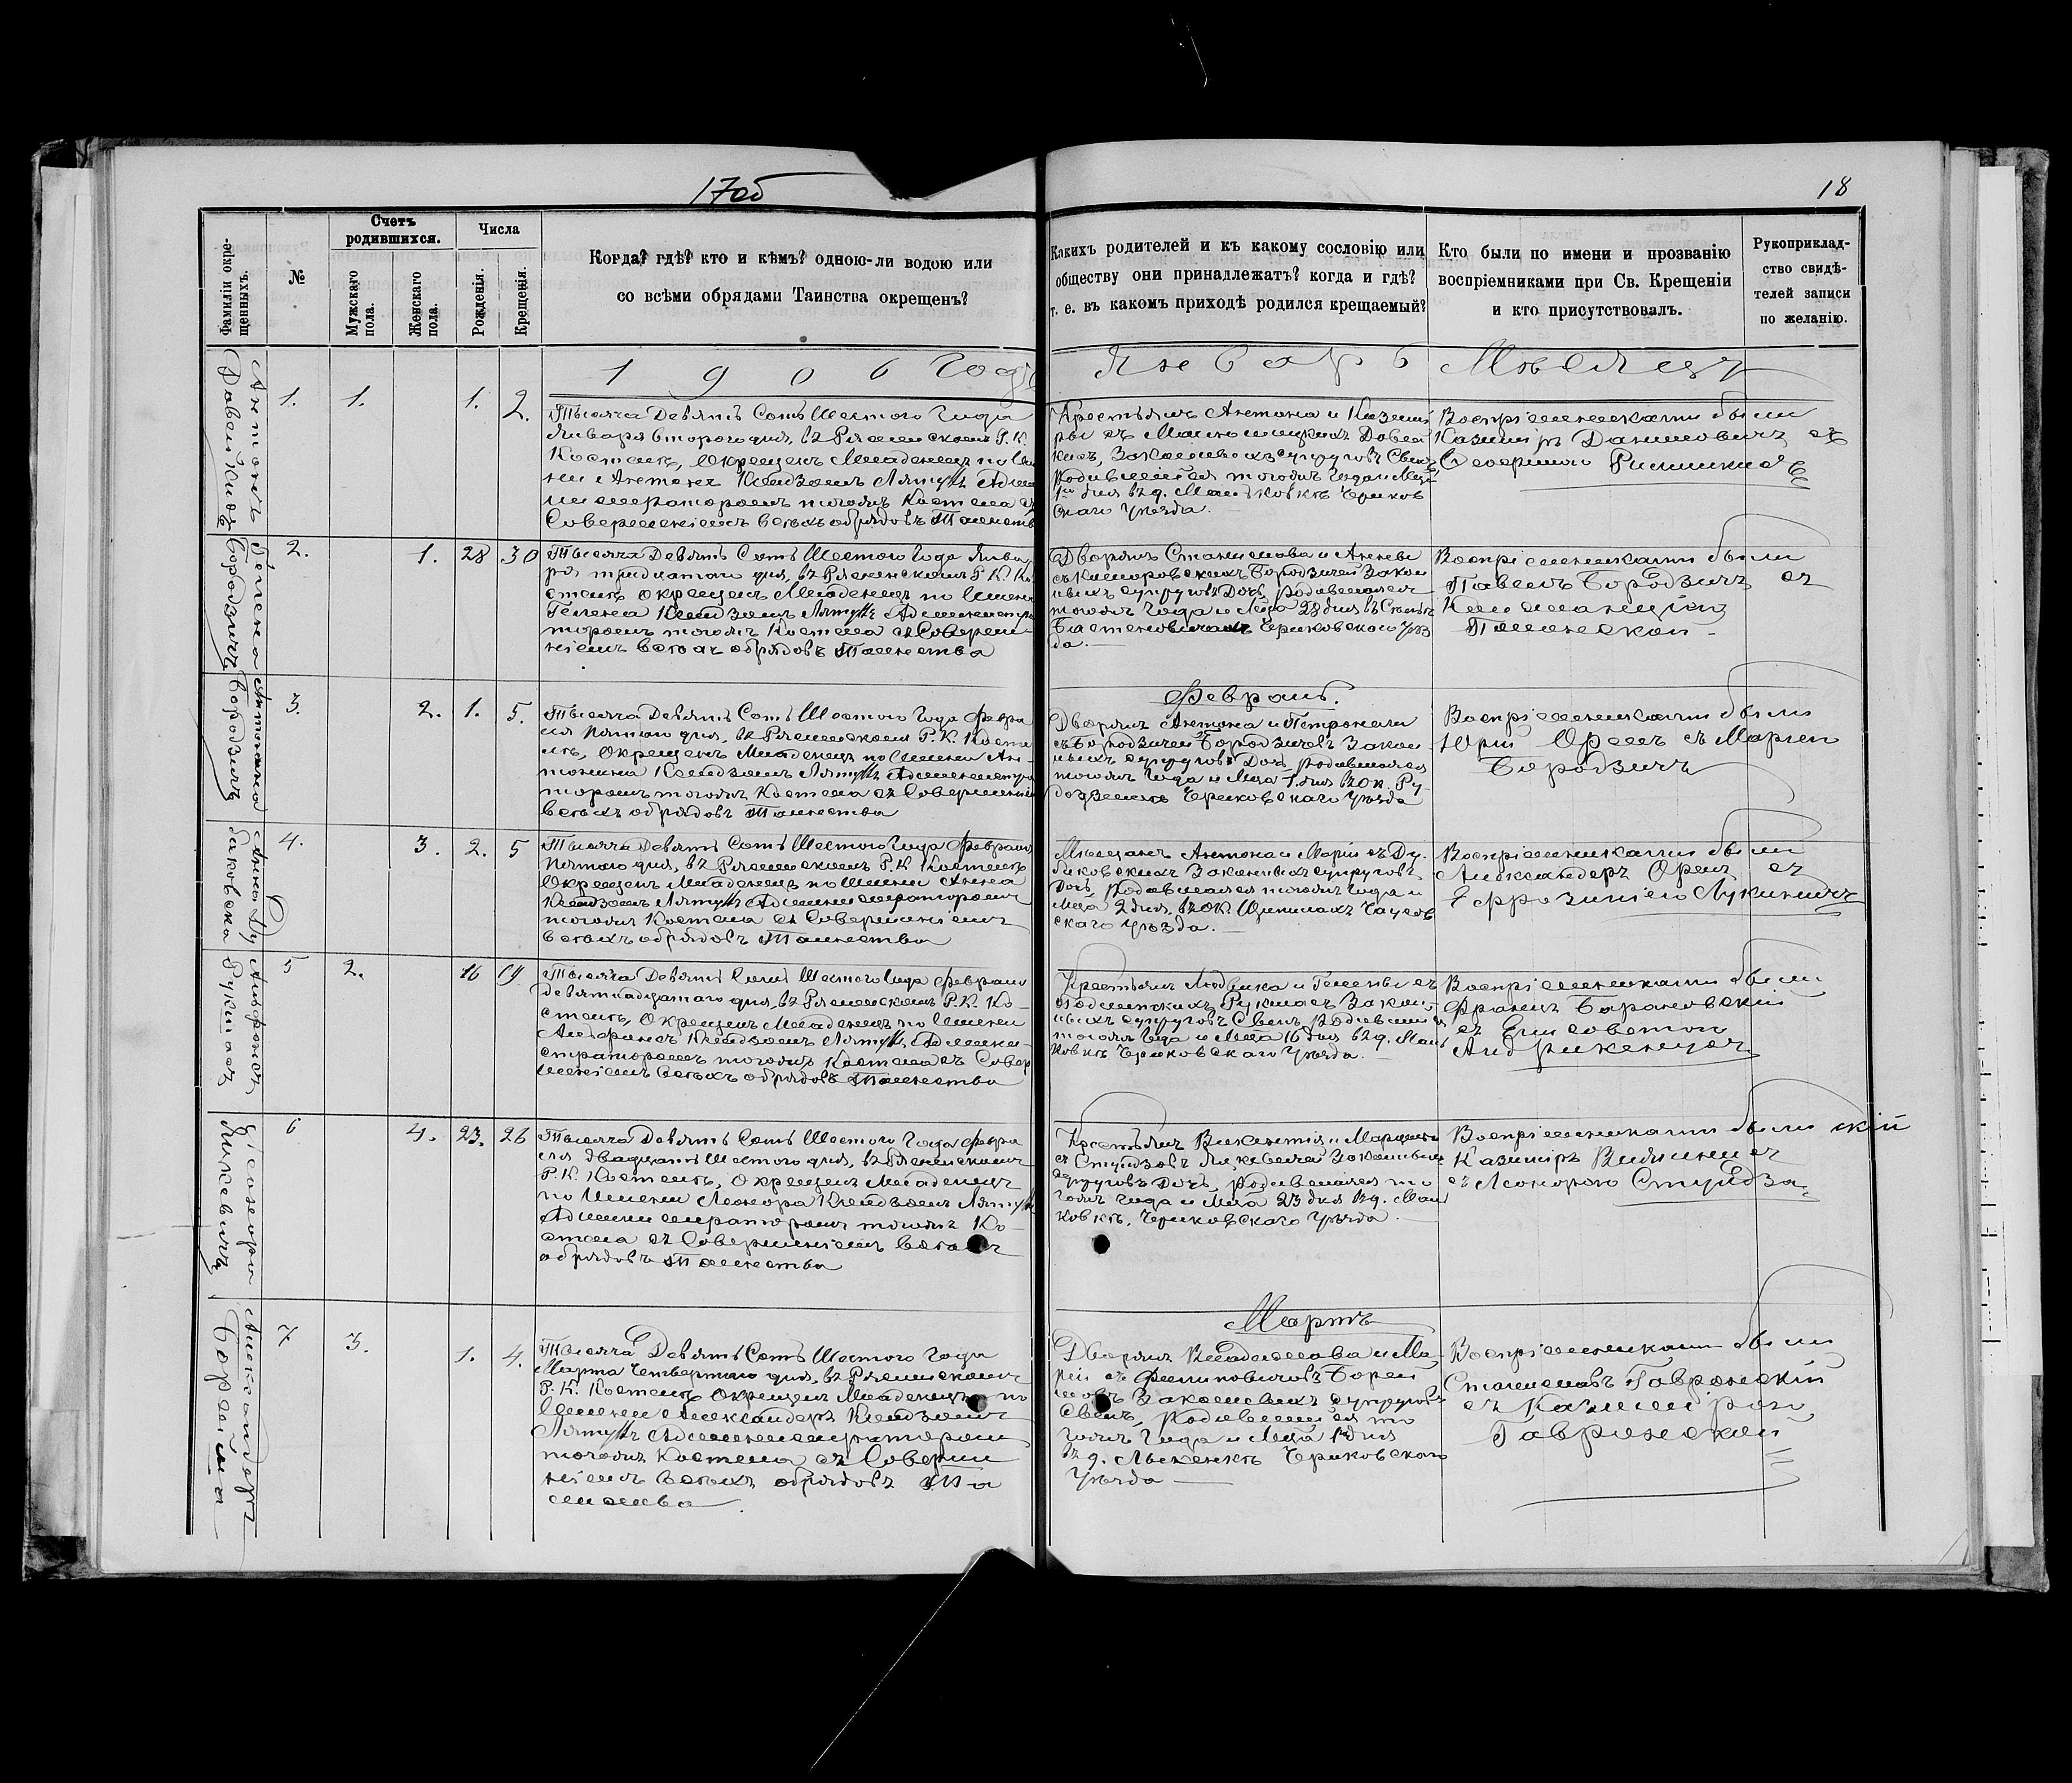 17об
18
Фамиліи окре-
щенныхъ.
№
Счетъ
родившихся.
Мужскаго
пола.
Женскаго
пола.
Числа
Рожденія.
Крещенія.
Когда? гдѣ? кто и кѣмъ? одною-ли водою или
со всѣми обрядами Таинства окрещенъ?
Каихъ родителей и къ какому сословію или
обществу они принадлежатъ? когда и гдѣ?
т. е. въ какомъ приходѣ родился крещаемый?
Кто были по имени и прозванію
воспріемниками при Св. Крещеніи
и кто присутствовалъ.
Рукоприклад-
ство свидѣ-
телей записи
по желанію.
1906 Года
Январь Мѣсяцъ
Антонъ
1.
1.
1.
2.
Тысяча Девять Сотъ Шестого Года
Января второго дня, въ Р.К.
Костелѣ, Окрещенъ Младенецъ по Име
ни Антонъ Ксендзомъ Адми
нистраторомъ тогожъ Костела съ
Совершеніемъ всѣхъ обрядовъ Таинства
Крестьянъ Антона и Казими
ры съ
Законныхъ супруговъ Сынъ,
родившійся тогожъ Года и Мца
1го дня въ д. Чериков
скаго Уѣзда.
Воспріемниками были
Казиміръ Даниловичъ съ
Елена
Бородзичъ
2.
1.
28
30
Тысяча Девять Сотъ Шестого Года Янва
ря тридцатаго дня, въ Р.К. Ко
стелѣ Окрещенъ Младенецъ по Имени
Гелена Ксендзомъ Администра
торомъ тогожъ Костела съ Соверше
ніемъ всѣхъ обрядовъ Таинства
Дворянъ Станислава и
Бородзичей Закон
ныхъ супруговъ Дочь, родившаяся
тогожъ Года и Мца 28 дня въ
Чериковскаго Уѣз
да.
Воспріемниками были
Павелъ Бородзичъ съ
Февраль.
Антонина
Бородзичъ
3.
2.
1.
5.
Тысяча Девять Сотъ Шестого Года Февра
ля Пятого дня, въ Р.К. Косте
лѣ, Окрещенъ Младенецъ по Имени Ан-
тонина Ксендзомъ Администра
торомъ тогожъ Костела съ Совершеніемъ
всѣхъ обрядовъ Таинства
Дворянъ Антона и Петронели
съ Бородзичей Бородзичовъ Закон
ныхъ супруговъ Дочь, родившаяся
тогожъ Года и Мца 1 дня въ ок. Ру
Чериковскаго Уѣзда
Воспріемниками были
Юрій съ Маріей
Бородзичъ
Анна Ду
баковска
4.
3.
2.
5
Тысяча Девять Сотъ Шестого Года Февраля
Пятого дня, въ Р.К. Костелѣ
Окрещенъ Младенецъ по Имени Анна
Ксендзомъ Администраторомъ
тогожъ Костела съ Совершеніемъ
всѣхъ обрядовъ Таинства
Мѣщанъ Антона и Маріи съ
Законныхъ супруговъ
Дочь, родившаяся тогожъ Года и
Мца 2 дня, въ ок. Чаусов
скаго Уѣзда.
Воспріемниками были
Александеръ съ
Ефрозиніею
Альфонсъ
Рукшасъ
5
2.
16
19
Тысяча Девять Сотъ Шестого Года Февраля
девятнадцатаго дня, въ Р.К. Ко-
стелѣ, Окрещенъ Младенецъ по Имени
Альфонсъ Ксендзомъ Админи-
страторомъ тогожъ Костела съ Совер
шеніемъ всѣхъ обрядовъ Таинства
Крестьянъ Людвика и Гелены съ
Рукшасъ Закон-
ныхъ супруговъ Сынъ, родившійся
тогожъ Года и Мца 16 дня въ д.
Чериковскаго Уѣзда.
Воспріемниками были
Францъ Барановскій
съ Елисаветой
Леонора
Янкевичъ
6
4.
23.
26
Тысяча Девять Сотъ Шестого Года Февра
ля двадцать Шестого дня, въ
Р.К. Костелѣ, Окрещенъ Младенецъ
по Имени Леонора Ксендзомъ
Администраторомъ тогожъ Ко-
стела съ Совершеніемъ всѣхъ
обрядовъ Таинства
Крестьянъ Викентія и
Законныхъ
супруговъ Дочь, родившаяся то
гожъ Года и Мца 23 дня въ д.
Чериковскаго Уѣзда
Воспріемниками были
Казиміръ
съ Леонорою
Мартъ
Александеръ
7
3.
1.
4.
Тысяча Девять Сотъ Шестого Года
Марта Четвертаго дня, въ
Р.К. Костелѣ Окрещенъ Младенецъ по
Имени Александеръ Ксендзомъ
Администраторомъ
тогожъ Костела съ Соверше
ніемъ всѣхъ обрядовъ Та
инства
Дворянъ Владислава и Ма
ріи съ Филиповичовъ
Законныхъ супруговъ
Сынъ, родившійся то
гожъ Года и Мца 1 дня
въ д. Чериковскаго
Уѣзда
Воспріемниками были
Станиславъ Гавронскій
съ Казимирою
Гавронской